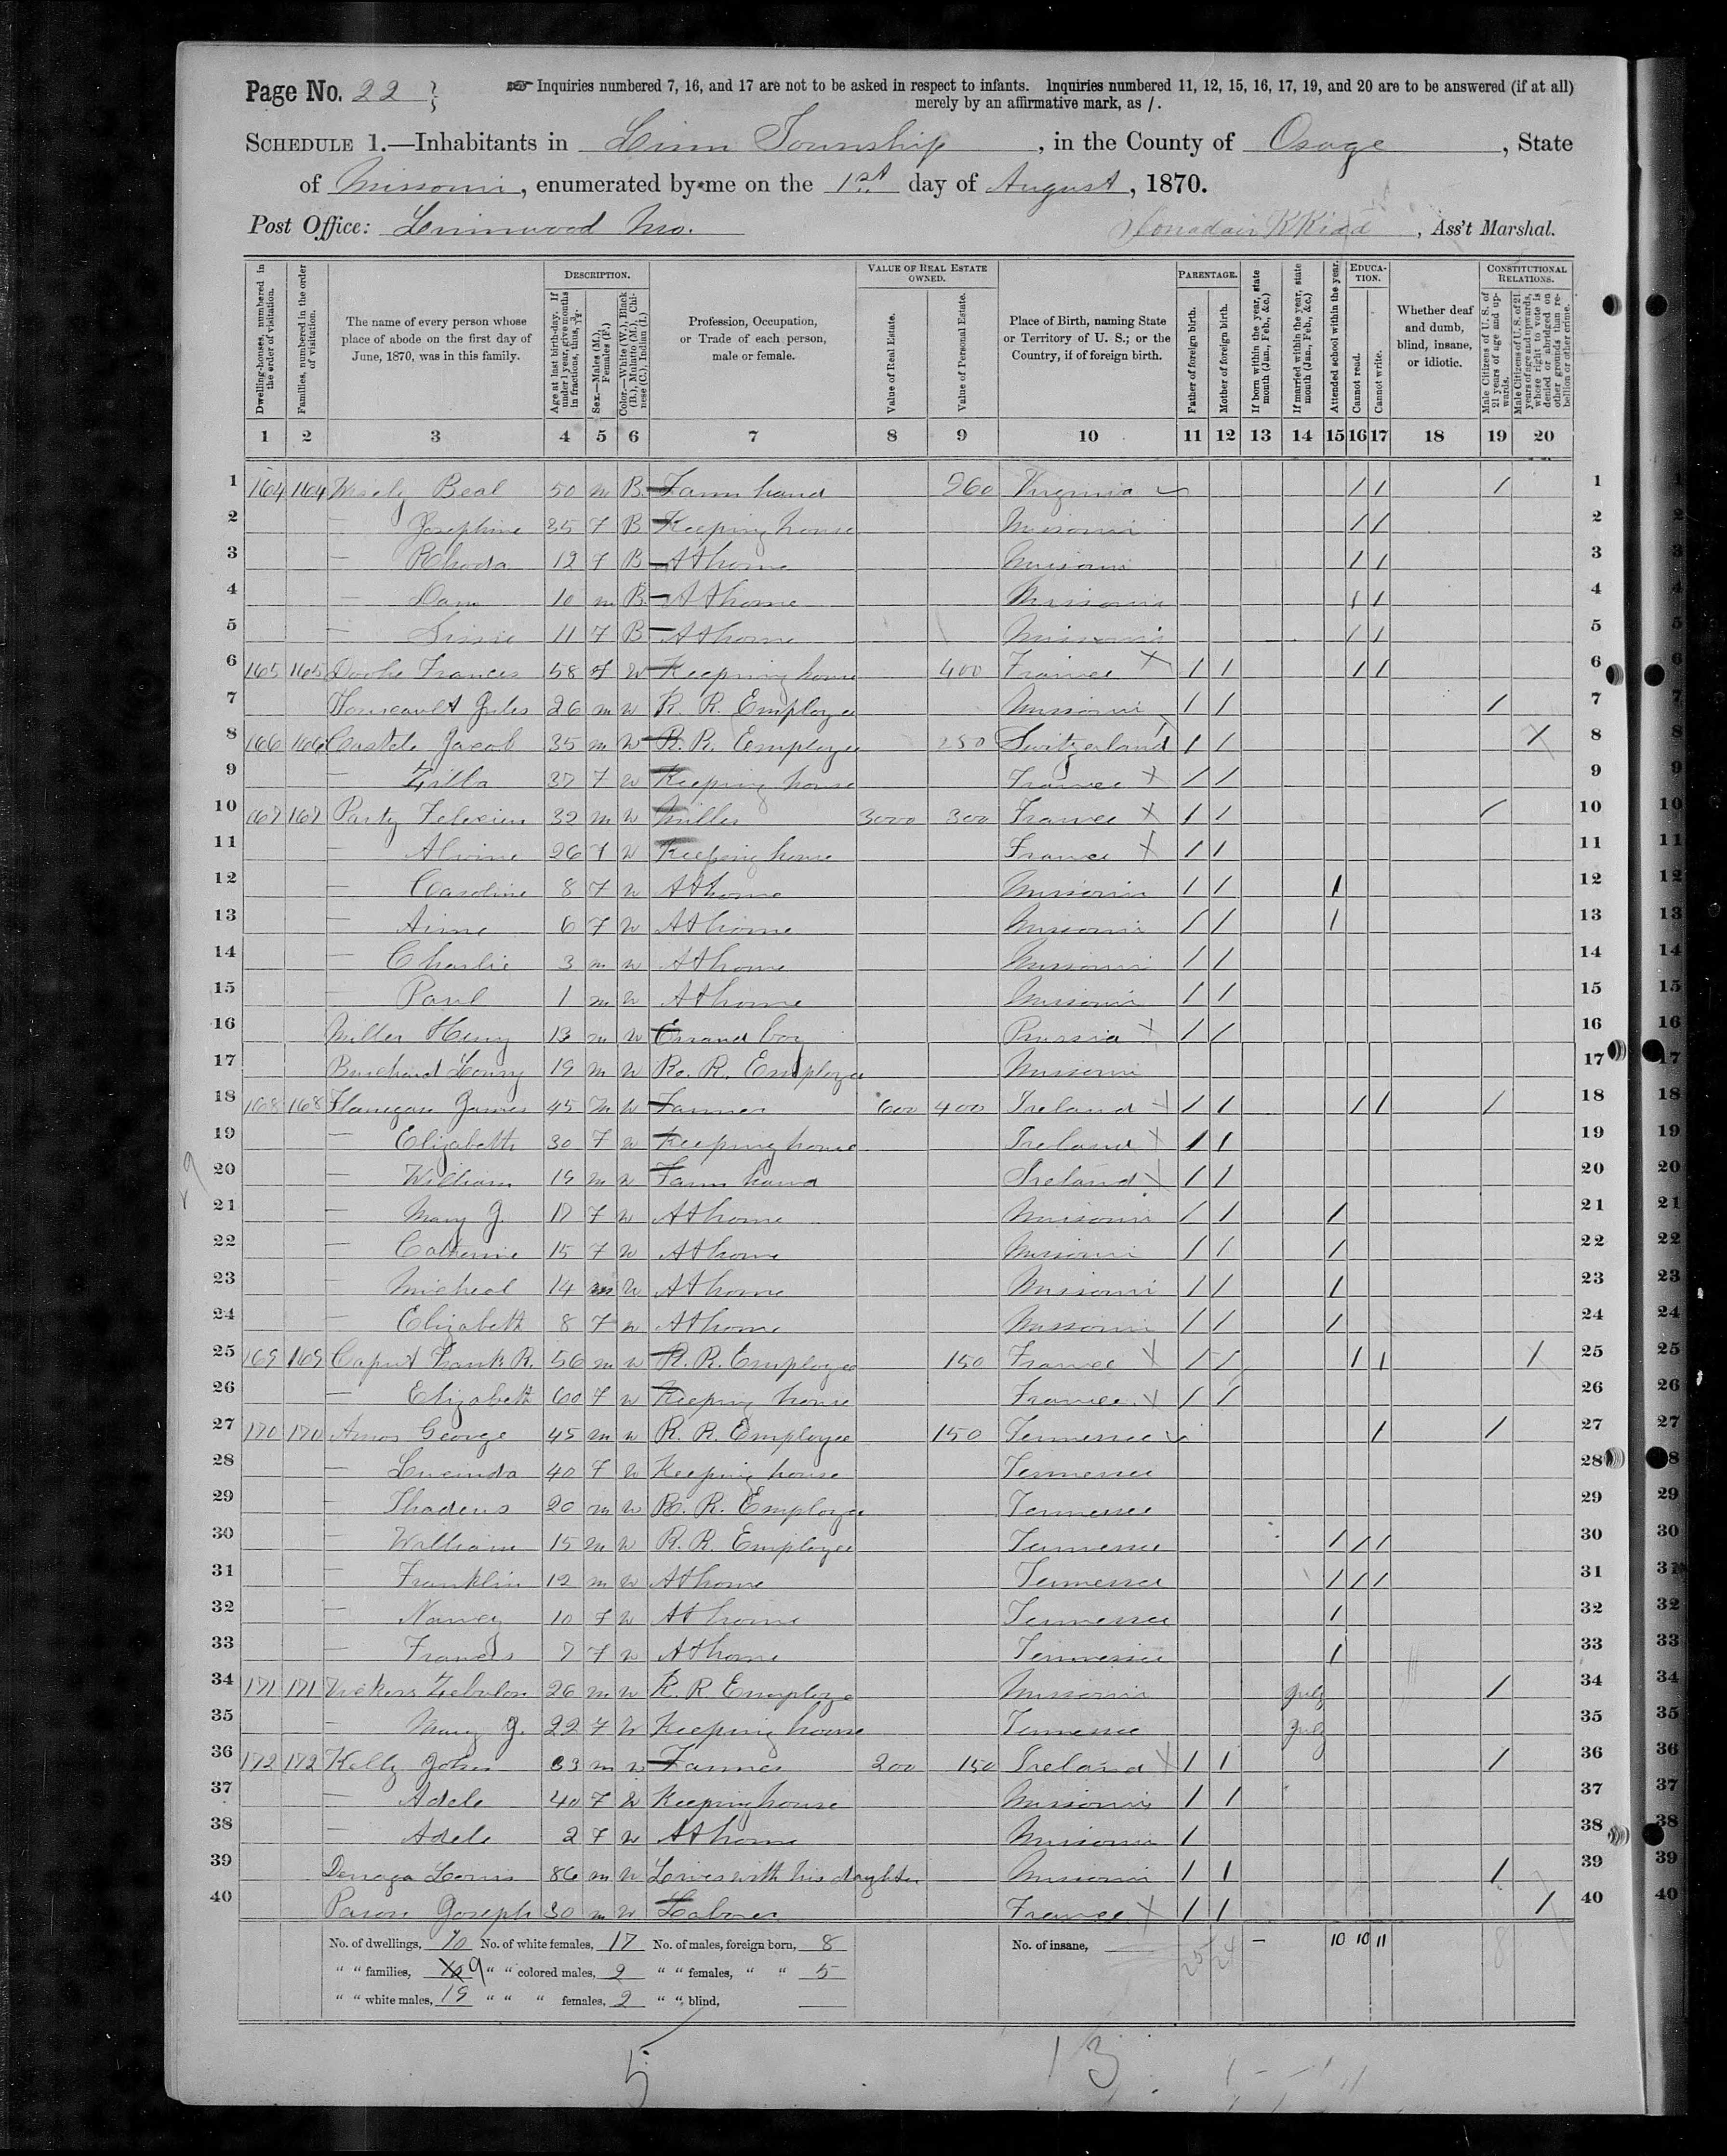 Page No. 22
☞ Inquiries numbered 7, 16, and 17 are not to be asked in respect to infants. Inquiries numbered 11, 12, 15, 16, 17, 19, and 20 are to be answered (if at all)
merely by an affirmative mark, as /.
SCHEDULE 1.—Inhabitants in Linn Township, in the County of Osage, State
of Missouri, enumerated by me on the 1st day of August, 1870.
Post Office: Linnwood Mo. Kidd, Ass't Marshal.
Dwelling-houses, numbered in the order of visitation.
Families, numbered in the order of visitation.
The name of every person whose place of abode on the first day of June, 1870, was in this family.
DESCRIPTION.
Age at last birth-day. If under 1 year, give months in fractions, thus, 3/12.
Sex.—Males (M.), Females (F.)
Color.—White (W.), Black (B.), Mulatto (M.), Chinese (C.), Indian (I.)
Profession, Occupation, or Trade of each person, male or female.
VALUE OF REAL ESTATE OWNED.
Value of Real Estate.
Value of Personal Estate.
Place of Birth, naming State or Territory of U. S.; or the Country, if of foreign birth.
PARENTAGE.
Father of foreign birth.
Mother of foreign birth.
If born within the year, state month (Jan., Feb., &c.)
If married within the year, state month (Jan., Feb., &c.)
Attended school within the year.
EDUCATION.
Cannot read.
Cannot write.
Whether deaf and dumb, blind, insane, or idiotic.
CONSTITUTIONAL RELATIONS.
Male Citizens of U. S. of 21 years of age and upwards.
Male Citizens of U. S. of 21 years of age and upwards, whose right to vote is denied or abridged on other grounds than rebellion or other crime.
1 2 3 4 5 6 7 8 9 10 11 12 13 14 15 16 17 18 19 20
1 164 164 Beal 50 m B Farm hand 260 Virginia / / / 1
2 — Josephine 35 F B Keeping house Missouri / / 2
3 — Rhoda 12 F B At home Missouri / / 3
4 — Dan 10 m B At home Missouri / / 4
5 — Sissie 11 F B At home Missouri / / 5
6 165 165 Frances 58 F W Keeping house 400 France X / / / / 6
7 Jules 26 m W R. R. Employee Missouri / / / 7
8 166 166 Jacob 35 m W R. R. Employee 250 Switzerland / / / 8
9 — Zilla 37 F W Keeping house France X / / 9
10 167 167 Party 32 m W Miller 3000 300 France X / / / 10
11 — Alvine 26 F W Keeping house France X / / 11
12 — Caroline 8 F W At home Missouri / / / 12
13 — Aime 6 F W At home Missouri / / / 13
14 — Charlie 3 m W At home Missouri / / 14
15 — Paul 1 m W At home Missouri / / 15
16 Miller Henry 13 m W Errand boy Prussia X / / 16
17 19 m W R. R. Employee Missouri 17
18 168 168 Flanegan James 45 M W Farmer 600 400 Ireland X / / / / / 18
19 — Elizabeth 30 F W Keeping house Ireland X / / 19
20 — William 19 m W Farm hand Ireland X / / 20
21 — Mary J. 17 F W At home Missouri / / / 21
22 — Catherine 15 F W At home Missouri / / / 22
23 — Micheal 14 m W At home Missouri / / / 23
24 — Elizabeth 8 F W At home Missouri / / / 24
25 169 169 Caput Frank R. 56 m W R. R. Employee 150 France X / / / / / 25
26 — Elizabeth 60 F W Keeping house France X / / 26
27 170 170 Amos George 45 m W R. R. Employee 150 Tennessee / / 27
28 — Lucinda 40 F W Keeping house Tennessee 28
29 — Thadeus 20 m W R. R. Employee Tennessee 29
30 — William 15 m W R. R. Employee Tennessee / / / 30
31 — Franklin 12 m W At home Tennessee / / / 31
32 — Nancy 10 F W At home Tennessee / 32
33 — Francis 7 F W At home Tennessee / 33
34 171 171 Vickers Zebulon 26 m W R. R. Employe Missouri July / 34
35 — Mary J. 22 F W Keeping house Tennessee July 35
36 172 172 Kelly John 63 m W Farmer 200 150 Ireland X / / / 36
37 — Adele 40 F W Keeping house Missouri / / 37
38 — Adele 2 F W At home Missouri / 38
39 Louis 86 m W Lives with his daughter Missouri / / / 39
40 Joseph 30 m W Laborer France X / / / 40
No. of dwellings, No. of white females, 17 No. of males, foreign born, 8 No. of insane, 25 24 – 10 10 11 8
" " families, 9 " " colored males, 2 " " females, " " 5
" " white males, 19 " " " females, 2 " " blind,
5 13